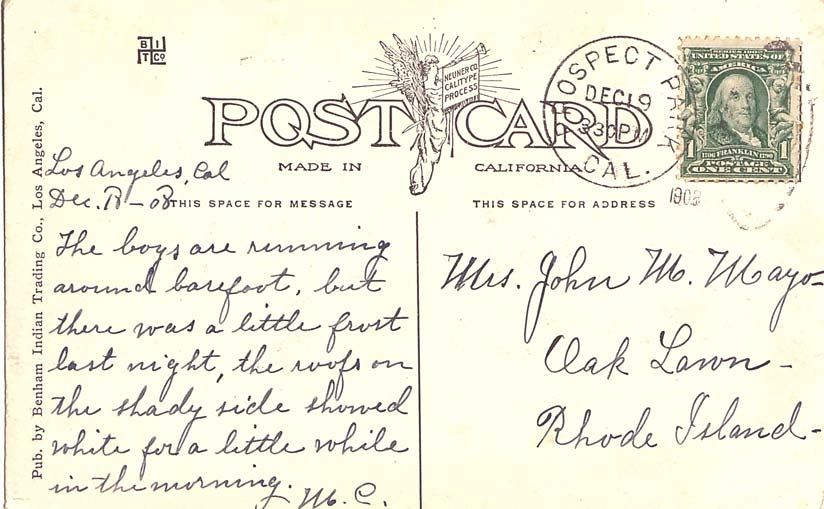 B I
T Co
NEUNER CO.
CALITYPE
PROCESS
POST CARD
MADE IN CALIFORNIA
THIS SPACE FOR MESSAGE
THIS SPACE FOR ADDRESS
PROSPECT PARK
DEC 19
330PM
CAL.
1908
UNITED STATES OF
AMERICA
1 1
1706 FRANKLIN 1790
POSTAGE
ONE CENT
Pub. by Benham Indian Trading Co., Los Angeles, Cal.
Los Angeles, Cal
Dec. 18-08
The boys are running
around barefoot, but
there was a little frost
last night, the roofs on
the shady side showed
white for a little while
in the morning.
M. C.
Mrs. John M. Mayo-
Oak Lawn-
Rhode Island-